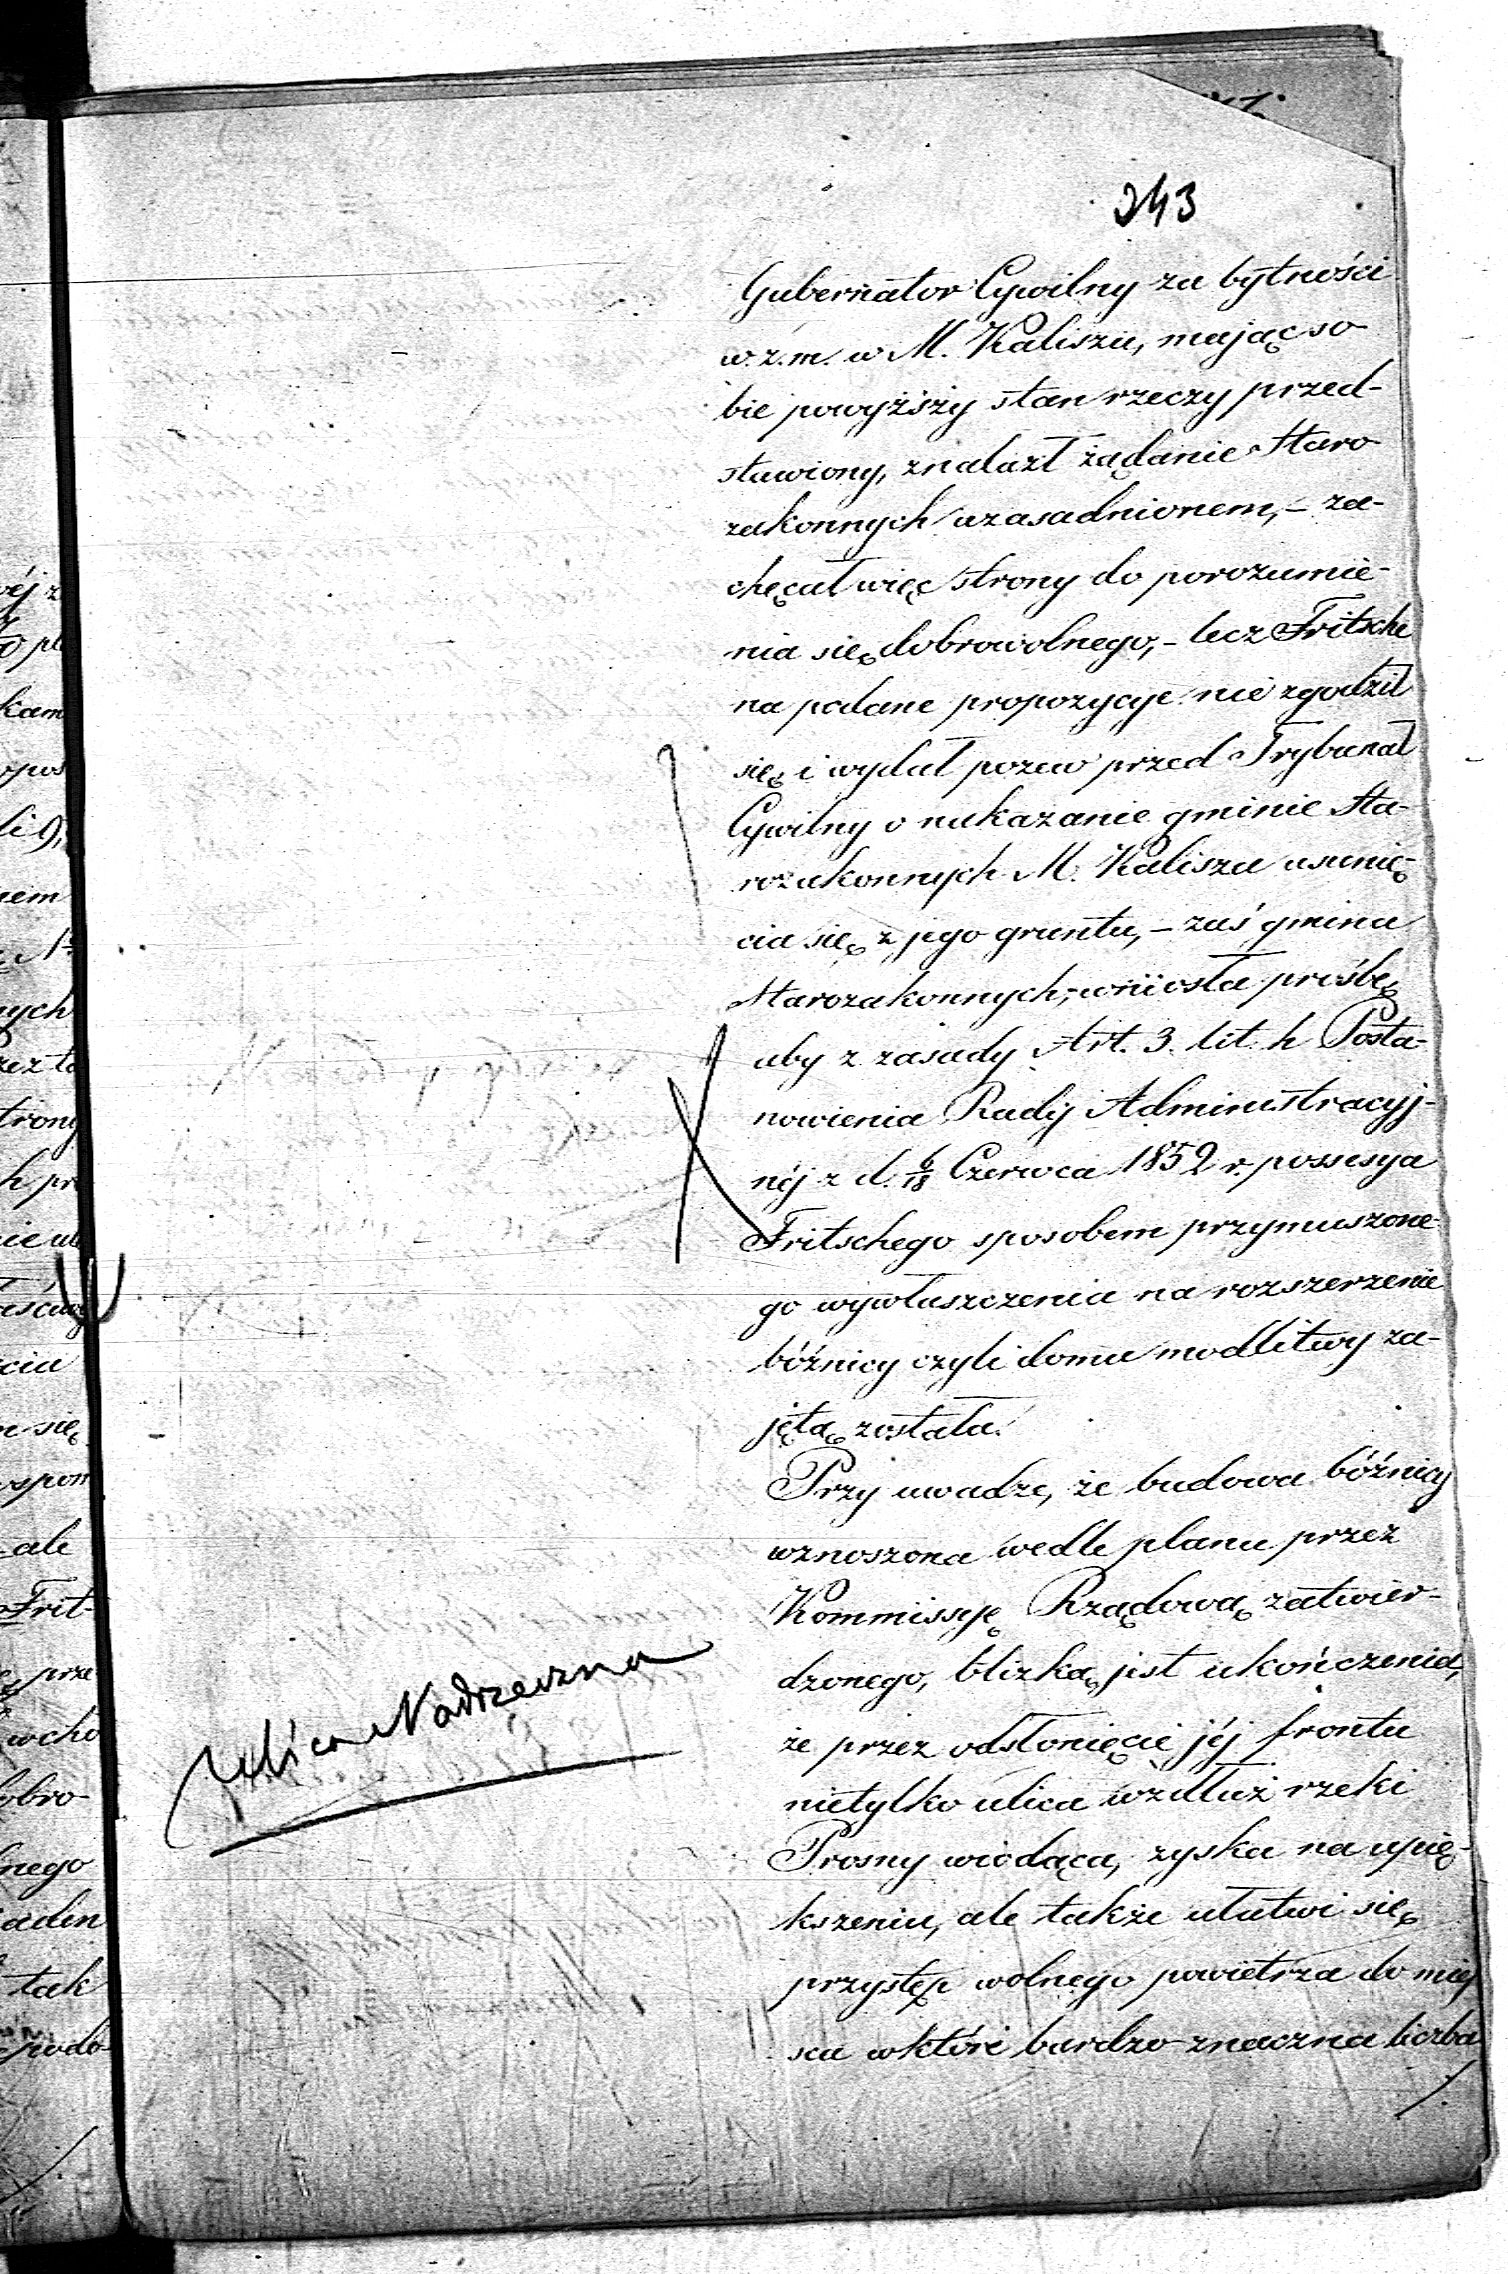 243
Gubernator Cywilny za bytności
w. z. m. w M. Kaliszu, mając so-
bie powyższy stan rzeczy przed-
stawiony, znalazł żądanie Staro
zakonnych uzasadnionem, – za-
chęcał więc strony do porozumie-
nia się dobrowolnego, – lecz Fritsche
na podane propozycye nie zgodził
się i wydał pozew przed Trybunał
Cywilny o nakazanie gminie Sta-
rozakonnych M. Kalisza usunię-
cia się z jego gruntu, – zaś gmina
Starozakonnych, wniosła prośbę
aby z zasady Art. 3. lit. h Posta-
nowienia Rady Administracyj-
néj z d. 6/18 Czerwca 1852 r. possesya
Fritschego sposobem przymuszone-
go wywłaszczenia na rozszerzenie
bóźnicy czyli domu modlitwy za-
jętą została.
Przy uwadze, że budowa bóźnicy
wznoszona wedle planu przez
Kommissyę Rządową zatwier-
dzonego, blizką jest ukończenia,
że przez odsłonięcie jéj frontu
nietylko ulica wzdłuż rzeki
Prosny wiodąca, zyska na upię-
kszeniu, ale także ułatwi się
przystęp wolnego powietrza do miej
sca w które bardzo znaczna liczba
./.
Ulica Nadrzeczna